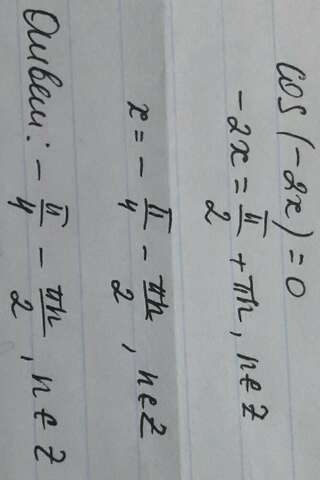 cos(-2x)=0
-2x = π/2 + πn, n∈Z
x = - π/4 - πn/2, n∈Z
Ответ: - π/4 - πn/2, n∈Z